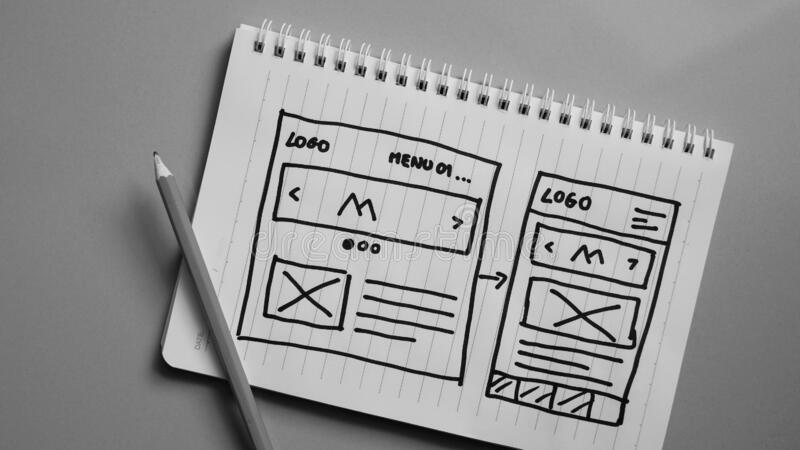 LOGO
MENU 01 ...
< M >
LOGO
< M >
DATE:
dreamstime